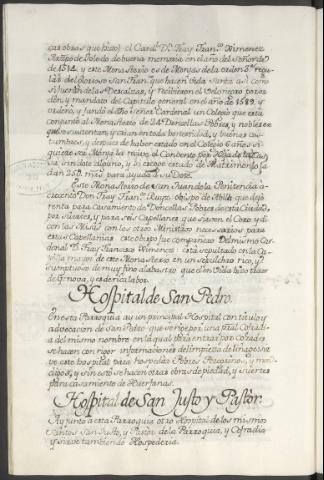 cas obras que hizo) el Card.l D.n Fray Fran.co Ximenez
Arzpo de Toledo de buena memoria en el año del Señor de
de 1514. y este Monasterio es de Monjas de la orden 3.a regu-
lar del glorioso San Fran.co que hacen vida santa asi como
si fueran de las Descalzas, y recibieron el Velo negro por or-
den, y mandato del Capitulo general en el año de 1589. y
ordenó, y fundó el dho Señor Cardenal un Colegio que está
conjunto al Monasterio de Doncellas Pobres, y nobles en
que se sustentan, y crian en toda honestidad, y buenas cos-
tumbres, y despues de haber estado en el Colegio 6 años si
quiere ser Monja la recive el Convento por Hija de la Casa
sin dote alguno, y si escoge estado de Matrimonio la
dan 250. mrs para ayuda de su Dote.
Este Monasterio de San Juan de la Penitencia a-
crecentó Don Fray Fran.co Ruiz obispo de Abila que dejó
renta para Casamiento de Doncellas Pobres de esta Ciudad,
y para seis Capellanes que sirven el Coro y di-
cen las Misas con los otros Ministros necesarios para
estas Capellanias este obispo fue compañero Del mismo Car-
denal D. Fray Francisco Ximenez y está sepultado en la Ca-
pilla mayor de este Monasterio en un sepulchro rico, y
sumptuoso de muy fino alabastro que el en Vida hizo traer
de Genova, y es de rica labor.
Hospital de San Pedro.
En esta Parroquia ay un principal Hospital con titulo, y
advocacion de San Pedro que se rige por una pral Cofradia
del mismo nombre en la qual para entrar por Cofrades
se hacen con rigor informaciones de limpieza de linage sirve
este hospital para hospedar Pobres Peregrinos, y men-
digos, y sin esto se hacen otras obras de piedad, y suertes
para casamiento de Huerfanas.
Hospital de San Justo y Pastor.
Ay junto a esta Parroquia otro Hospital de los mismos
Santos San Justo, y Pastor de la Parroquia, y Cofradia
y sirve tambien de Hospederia.